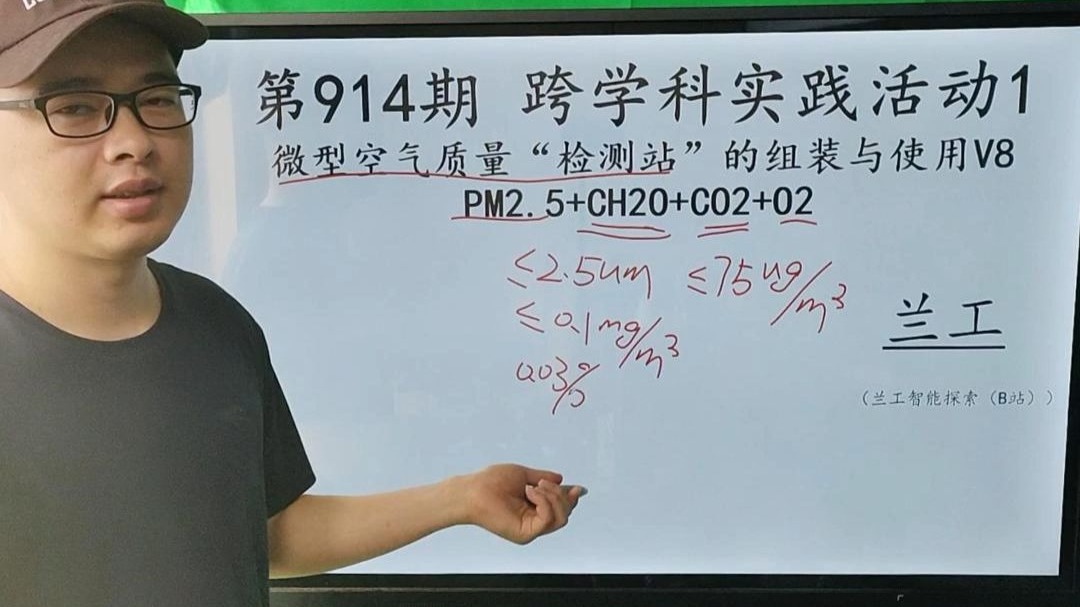 第914期 跨学科实践活动1
微型空气质量“检测站”的组装与使用V8
PM2.5+CH2O+CO2+O2
≤2.5um ≤75ug/m³
≤0.1mg/m³
0.03%
兰工
（兰工智能探索（B站））